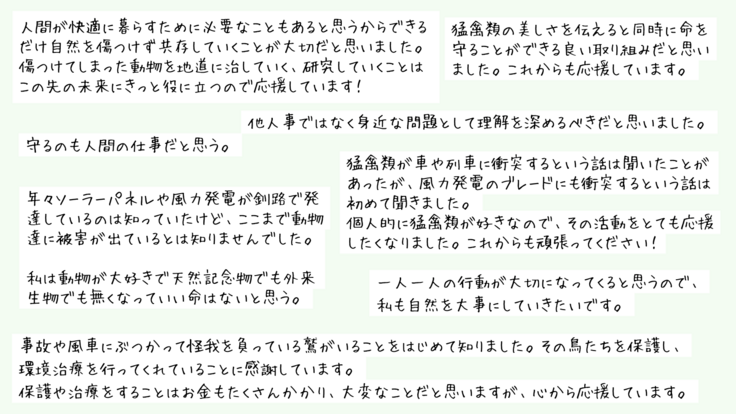 人間が快適に暮らすために必要なこともあると思うからできる
だけ自然を傷つけず共存していくことが大切だと思いました。
傷つけてしまった動物を地道に治していく、研究していくことは
この先の未来にきっと役に立つので応援しています！
猛禽類の美しさを伝えると同時に命を
守ることができる良い取り組みだと思い
ました。これからも応援しています。
他人事ではなく身近な問題として理解を深めるべきだと思いました。
守るのも人間の仕事だと思う。
猛禽類が車や列車に衝突するという話は聞いたことが
あったが、風力発電のブレードにも衝突するという話は
初めて聞きました。
個人的に猛禽類が好きなので、その活動をとても応援
したくなりました。これからも頑張ってください！
年々ソーラーパネルや風力発電が釧路で発
達しているのは知っていたけど、ここまで動物
達に被害が出ているとは知りませんでした。
私は動物が大好きで天然記念物でも外来
生物でも無くなっていい命はないと思う。
一人一人の行動が大切になってくると思うので、
私も自然を大事にしていきたいです。
事故や風車にぶつかって怪我を負っている鷲がいることをはじめて知りました。その鳥たちを保護し、
環境治療を行ってくれていることに感謝しています。
保護や治療をすることはお金もたくさんかかり、大変なことだと思いますが、心から応援しています。